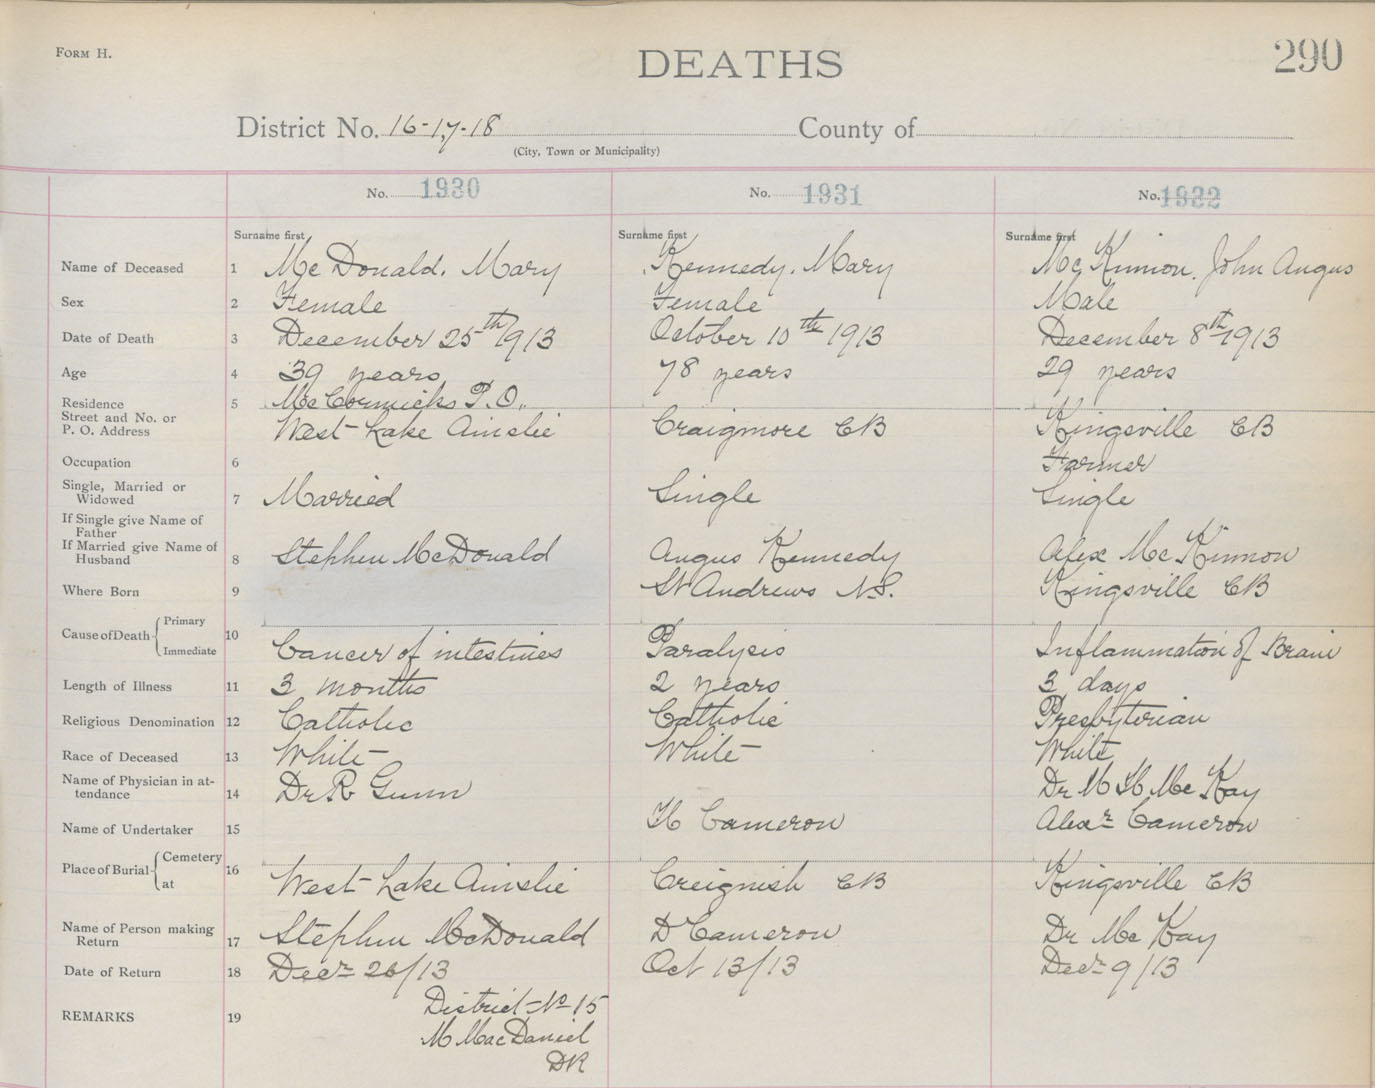 FORM H.
DEATHS
290
District No. 16-17-18 County of
(City, Town or Municipality)
No. 1930 No. 1931 No. 1932
Surname first Surname first Surname first
Name of Deceased 1 McDonald. Mary Kennedy. Mary McKinnon. John Angus
Sex 2 Female Female Male
Date of Death 3 December 25th 1913 October 10th 1913 December 8th 1913
Age 4 39 years 78 years 29 years
Residence 5 McCormicks P.O.
Street and No. or
P. O. Address West Lake Ainslie Craigmore CB Kingsville CB
Occupation 6 Farmer
Single, Married or
Widowed 7 Married Single Single
If Single give Name of
Father
If Married give Name of
Husband 8 Stephen McDonald Angus Kennedy Alex McKinnon
Where Born 9 St Andrews N.S. Kingsville CB
Cause of Death Primary
Immediate 10 Cancer of intestines Paralysis Inflammation of Brain
Length of Illness 11 3 months 2 years 3 days
Religious Denomination 12 Catholic Catholic Presbyterian
Race of Deceased 13 White White White
Name of Physician in at-
tendance 14 Dr R Gunn Dr M H McKay
Name of Undertaker 15 H Cameron Alexr Cameron
Place of Burial Cemetery
at 16 West Lake Ainslie Creignish CB Kingsville CB
Name of Person making
Return 17 Stephen McDonald D Cameron Dr McKay
Date of Return 18 Decr 26/13 Oct 13/13 Decr 9/13
REMARKS 19 District No 15
M MacDaniel
DR